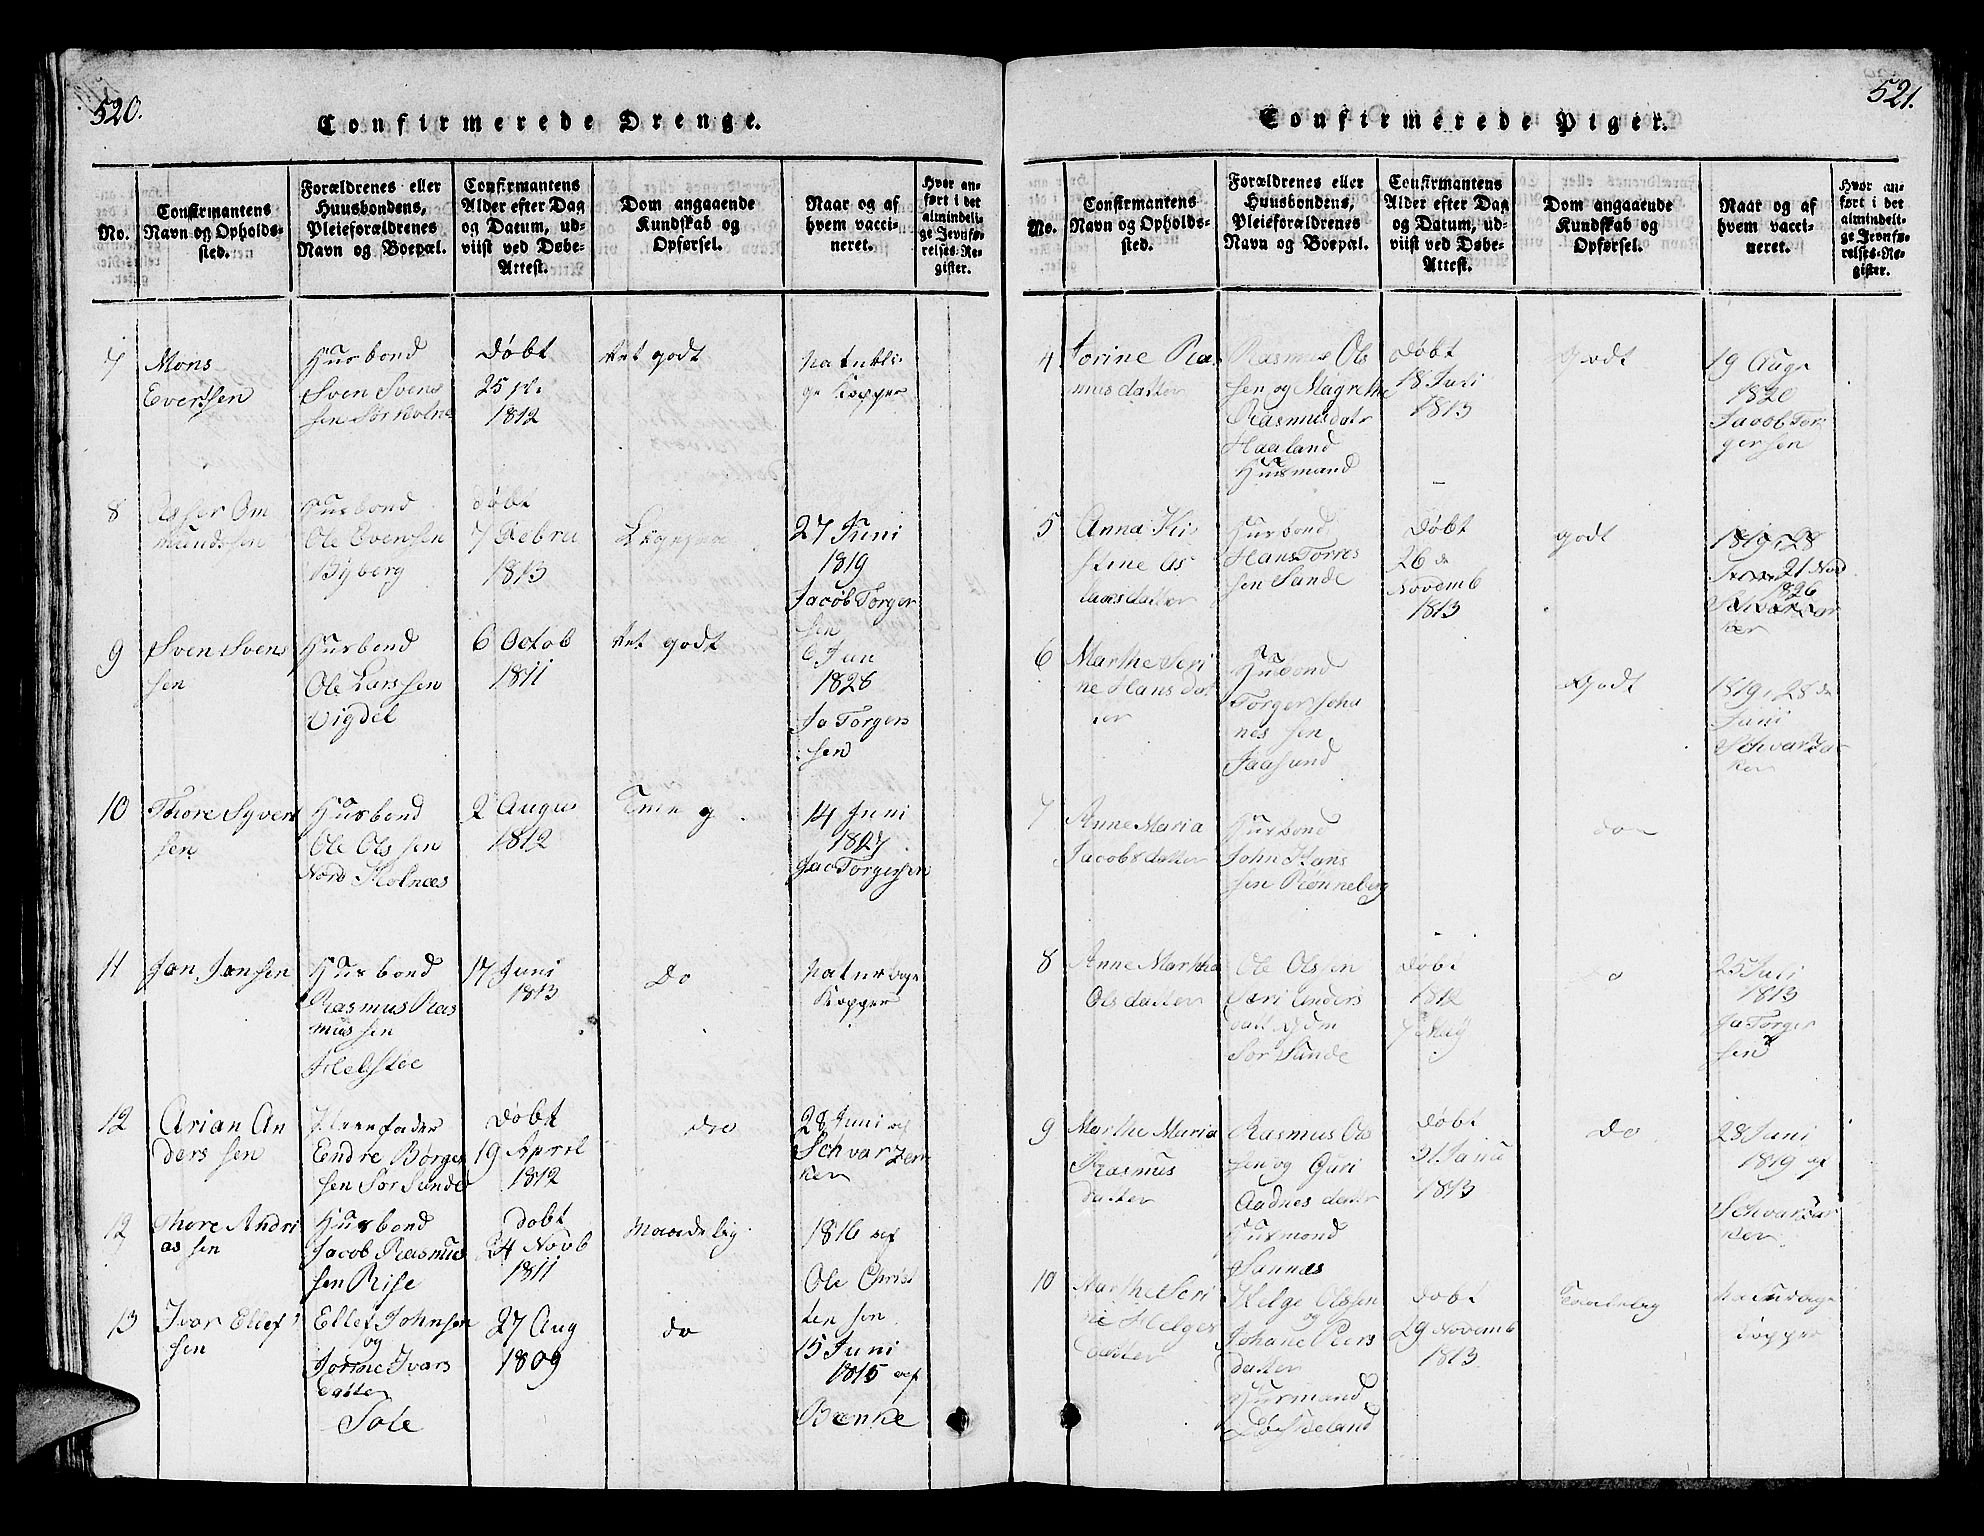 520.
Confirmerede Drenge.
No.
Confirmantens
Navn og Opholds-
sted.
Forældrenes eller
Huusbondens,
Pleieforældrenes
Navn og Boepæl.
Confirmantens
Alder efter Dag
og Datum, ud-
viist ved Døbe-
Attest.
Dom angaaende
Kundskab og
Opførsel.
Naar og af
hvem vacci-
neret.
Hvor an-
ført i det
almindeli-
ge Jevnfø-
relses-Re-
gister.
7
Mons
Evertsen
Husbond
Sven Svens
sen Sør Kolne
Døbt
25
1812
godt
Naturli
ge Kopper
8
Om
mundssen
Husbond
Ole Evensen
Byberg
døbt
7 Febru
1813
27 Juni
1819
Jacob Torger
sen
9
Sven Svens
sen
Husbond
Ole Larssen
Vigdel
6 Octob
1811
godt
6 Jan
1828
Ja Torgers
sen
10
Thore Syvert
sen
Husbond
Ole Olssen
Nord Kolnæs
2 Augus
1812
14 Juni
1827
Jac Torgersen
11
Jan Jansen
Husbond
Rasmus Ras
mussen
Helstøe
17 Juni
1813
Do
Kopper
12
Arian An
derssen
Endre Børge
sen Sør Sunde
Døbt
19 Aprel
1812
do
28 Juni af
Schvarzen
ker
12
Thore Andri
assen
Husbond
Jacob Rasmus
sen Rise
Dobt
24 Novb
1811
Maadelig
1816 af
Ole Christ
ten sen
13
Ivar Ellef
sen
Ellef Johnsen
og
Ivars
datter
Sole
27 Aug
1809
do
15 Juni
1815 af
Brenke
521.
Confirmerede Piger.
No.
Confirmantens
Navn og Opholds-
sted.
Forældrenes eller
Huusbondens,
Pleieforældrenes
Navn og Boepæl.
Confirmantens
Alder efter Dag
og Datum, ud-
viist ved Døbe-
Attest.
Dom angaaende
Kundskab og
Opførsel.
Naar og af
hvem vacci-
neret.
Hvor an-
ført i det
almindeli-
ge Jevnfø-
relses-Re-
gister.
4
Torine Ra
musdatter
Rasmus Ols
sen og Magrethe
Rasmusdatr
Haaland
Husmand
Døbt
18 Juri
1813
Godt
19 Augr
1820
Jacob Tor
gersen
5
Anna Ki
stine As
datter
Husbond
Hans Torres
sen Sande
Døbt
26 de
Novemb
1813
godt
1819, 28
21 Nov
1826
ker
6
Marthe Seri
ne Hans dat
ter
Husbond
Torger Joha
nes sen
Jaasund
Godt
1819, 28 de
Juni
Schvartza
ker
7
Anne Maria
Jacobsdatter
Husbond
John Hans
sen Rønneberg
do
8
Anne Martha
Olsdatter
Ole Olssen
Anders
datt
Sør Sunde
Døbt
1812
7 Maÿ
o
25 Juri
1813
Ja Torger
sen
9
Marthe Maria
Rasmus
datter
Rasmus Ols
sen og Guri
Aadnes datter
Husmand
Sannæs
Døbt
31 Janu
1813
Do
28 Juni
1819 af
Schvarzar
ker
10
Marthe Seri
ne Helges
datter
Helge Olssen
og
Johane Peers
datter
Husmand
Døbt
29 Novemb
1813
Kopper